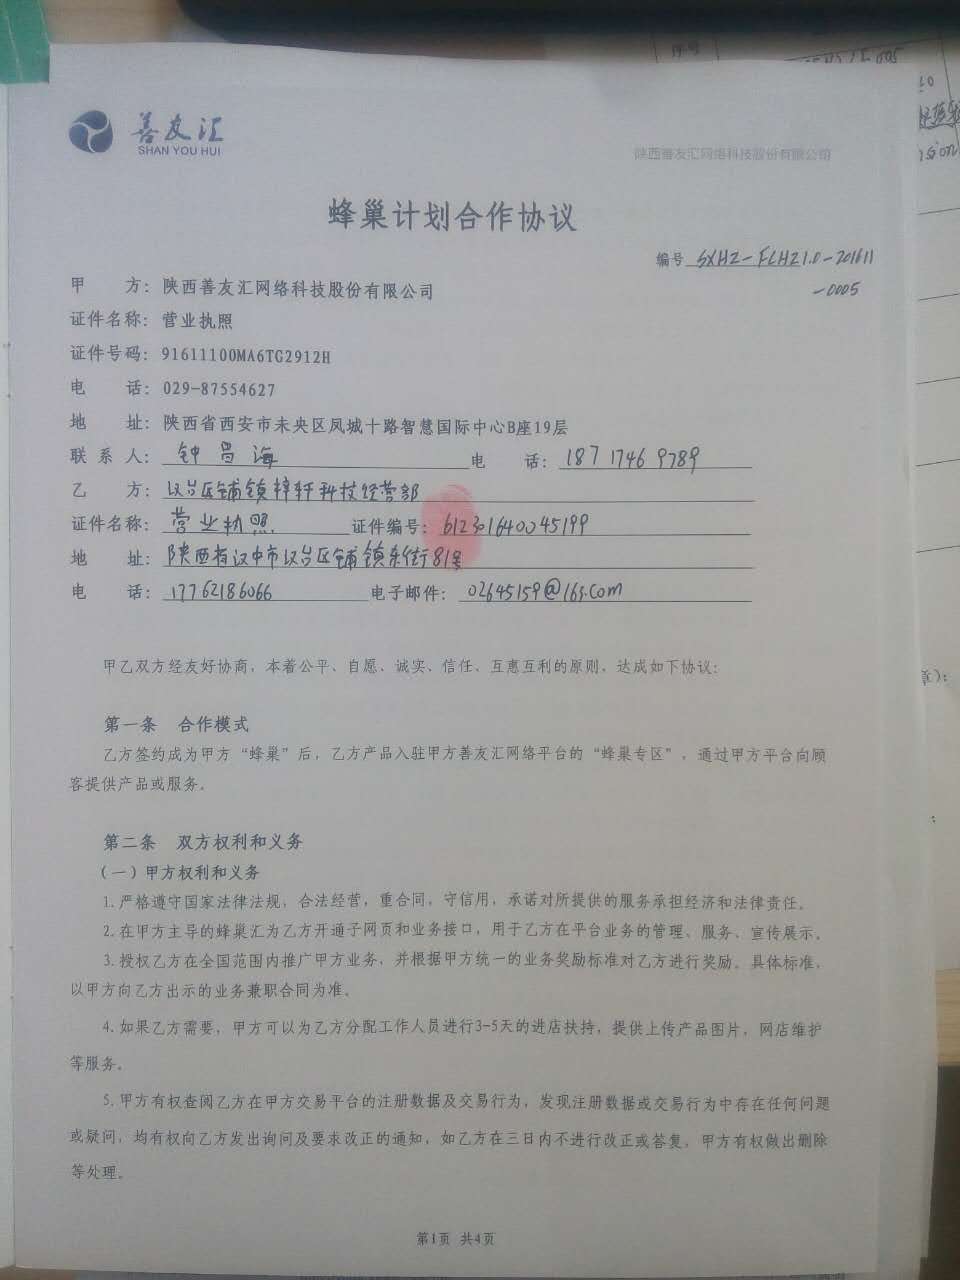 序号
善友汇
SHAN YOU HUI
陕西善友汇网络科技股份有限公司
蜂巢计划合作协议
编号 SXHZ-FCHZ1.0-201611
-0005
甲 方：陕西善友汇网络科技股份有限公司
证件名称：营业执照
证件号码：91611100MA6TG2912H
电 话：029-87554627
地 址：陕西省西安市未央区凤城十路智慧国际中心B座19层
联 系 人：钟昌海 电 话：187 1746 9789
乙 方：汉台区铺镇梓轩科技经营部
证件名称：营业执照 证件编号：612301640045199
地 址：陕西省汉中市汉台区铺镇东街81号
电 话：17762186066 电子邮件：02645159@163.com
甲乙双方经友好协商，本着公平、自愿、诚实、信任、互惠互利的原则，达成如下协议：
第一条 合作模式
乙方签约成为甲方“蜂巢”后，乙方产品入驻甲方善友汇网络平台的“蜂巢专区”，通过甲方平台向顾
客提供产品或服务。
第二条 双方权利和义务
（一）甲方权利和义务
1.严格遵守国家法律法规，合法经营，重合同，守信用，承诺对所提供的服务承担经济和法律责任。
2.在甲方主导的蜂巢汇为乙方开通子网页和业务接口，用于乙方在平台业务的管理、服务、宣传展示。
3.授权乙方在全国范围内推广甲方业务，并根据甲方统一的业务奖励标准对乙方进行奖励。具体标准，
以甲方向乙方出示的业务兼职合同为准。
4.如果乙方需要，甲方可以为乙方分配工作人员进行3-5天的进店扶持，提供上传产品图片，网店维护
等服务。
5.甲方有权查阅乙方在甲方交易平台的注册数据及交易行为，发现注册数据或交易行为中存在任何问题
或疑问，均有权向乙方发出询问及要求改正的通知，如乙方在三日内不进行改正或答复，甲方有权做出删除
等处理。
章）：
第1页 共4页